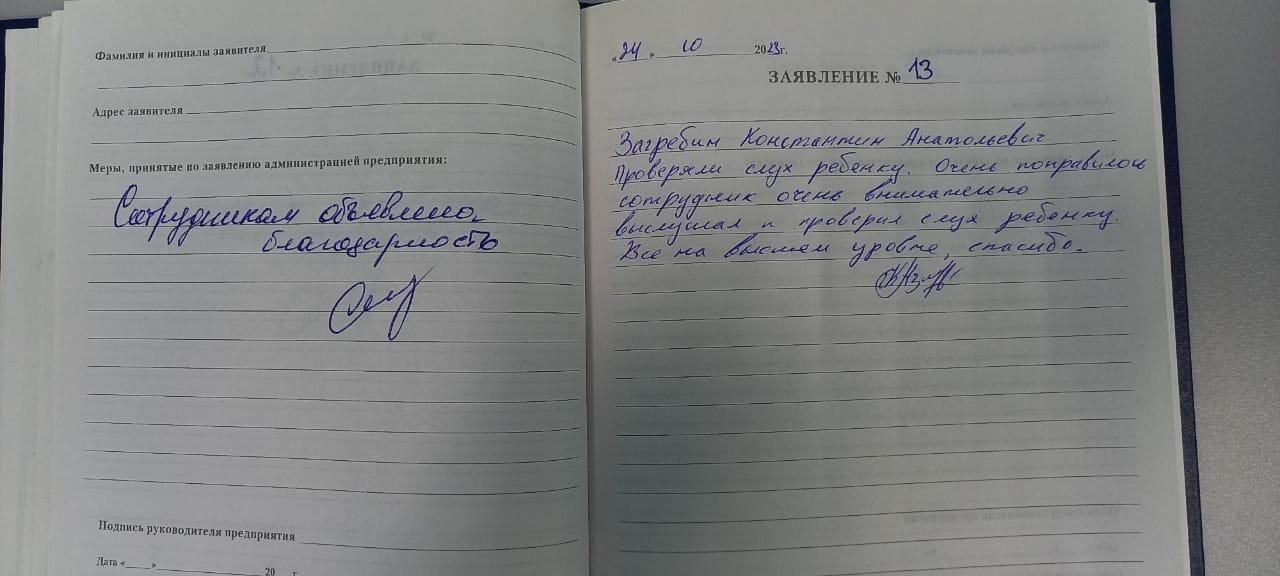 Фамилия и инициалы заявителя
Адрес заявителя
Меры, принятые по заявлению администрацией предприятия:
Сотрудникам объявлена
благодарность
Подпись руководителя предприятия
Дата « » 20 г.
«24» 10 2023г.
ЗАЯВЛЕНИЕ № 13
Загребин Константин Анатольевич
Проверяли слух ребенку. Очень понравилось
сотрудник очень внимательно
выслушал и проверил слух ребенку.
Все на высшем уровне, спасибо.